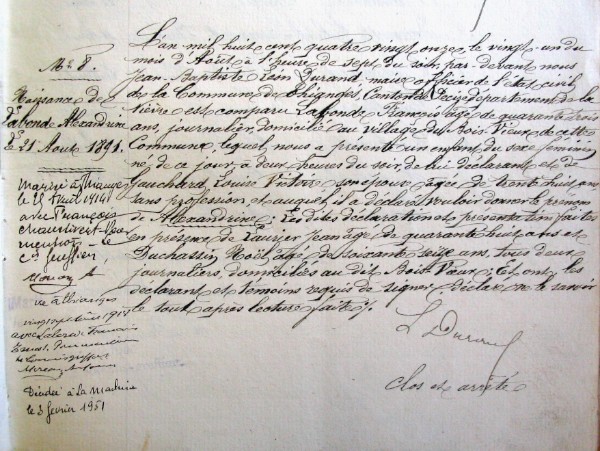 No 8.
Naissance de
Labonde Alexandrine
le 21 Août 1891.
L'an mil huit cent quatre vingt onze, le vingt-un du
mois d'Août à l'heure de sept du soir, par-devant nous
Jean-Baptiste Durand maire officier de l'état civil
de la Commune de Thianges, Canton de Decize département de la
Nièvre est comparu Labonde François âgé de quarante trois
ans, journalier, domicilié au village du Bois Vieux de cette
Commune, lequel nous a présenté un enfant du sexe féminin
né de ce jour, à deux heures du soir, de lui déclarant et de
Gauchard Louise Victoire son épouse âgée de trente huit ans,
sans profession, et auquel il a déclaré vouloir donner le prénom
de Alexandrine; Les dites déclaration et présentation faites
en présence de Laurier Jean âgé de quarante huit ans et
Duchassin Noël âgé de soixante seize ans, tous deux
journaliers, domiciliés au dit Bois Vieux; Et ont les
déclarant et témoins requis de signer, déclaré ne le savoir
le tout après lecture faite.
L Durand
Clos et arrêté
Mariée à
le 25 Avril 1914
avec François
mention le
vingt sept 19
avec
Décédée à La Machine
le 3 février 1951